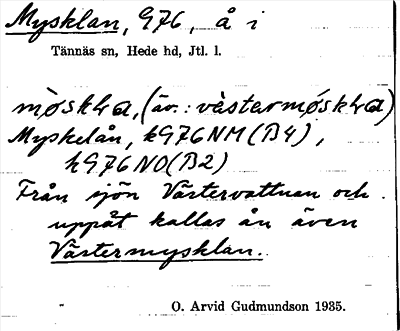 Mysklan, G76, å i
Tännäs sn, Hede hd, Jtl. l.
mø̀skɫɑ, (äv.: vàstermøskɫɑ)
Myskelån, kG76NM(B4),
kG76NO(B2)
Från sjön Västervattnan och
uppåt kallas ån även
Västermysklan.
O. Arvid Gudmundson 1935.